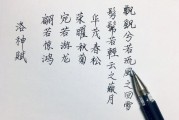 飄飖兮若流風之回雪
髣髴若輕云之蔽月
华茂春松
榮曜秋菊
宛若游龍
翩若惊鴻
洛神賦